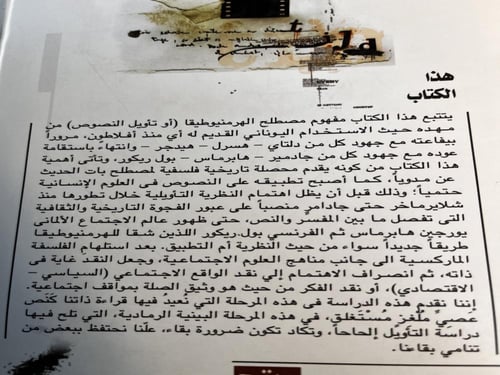 هذا
الكتاب
يتتبع هذا الكتاب مفهوم مصطلح الهرمنيوطيقا (أو تأويل النصوص) من
مهده حيث الاستخدام اليوناني القديم له أي منذ أفلاطون، مروراً
بيفاعته مع جهود كل من دلتاي – هسرل – هيدجر – وانتهاءً باستقامة
عوده مع جهود كل من جادمير – هابرماس – بول ريكور. وتأتى أهمية
هذا الكتاب من كونه يقدم محصلة تاريخية فلسفية لمصطلح بات الحديث
عن مدوياً، كما أصبح تطبيقه على النصوص فى العلوم الإنسانية
حتمياً؛ وذلك قبل أن يظل اهتمام النظرية التأويلية خلال تطورها منذ
شلايرماخر حتى جادامر منصباً على عبور الفجوة التاريخية والثقافية
التى تفصل ما بين المفسِّر والنص، حتى ظهور عالم الاجتماع الألمانى
يورجين هابرماس ثم الفرنسي بول.ريكور اللذين شقا للهرمنيوطيقا
طريقاً جديداً سواء من حيث النظرية أم التطبيق. بعد استلهام الفلسفة
الماركسية الى جانب مناهج العلوم الاجتماعية، وجعل النقد غاية فى
ذاته، ثم انصراف الاهتمام إلي نقد الواقع الاجتماعي (السياسي –
الاقتصادي)، أو نقد الفكر من حيث هو وثيق الصلة بمواقف اجتماعية.
إننا نقدم هذه الدراسة فى هذه المرحلة التي نُعيدُ فيها قراءة ذاتنا كَنَص
عصيٍّ ملغز مُستَغلَق، في هذه المرحلة البينية الرمادية، التي تلح فيها
دراسة التأويل إلحاحاً، وتكاد تكون ضرورة بقاء، علّنا نحتفظ ببعض من
تنامي بقاءنا.